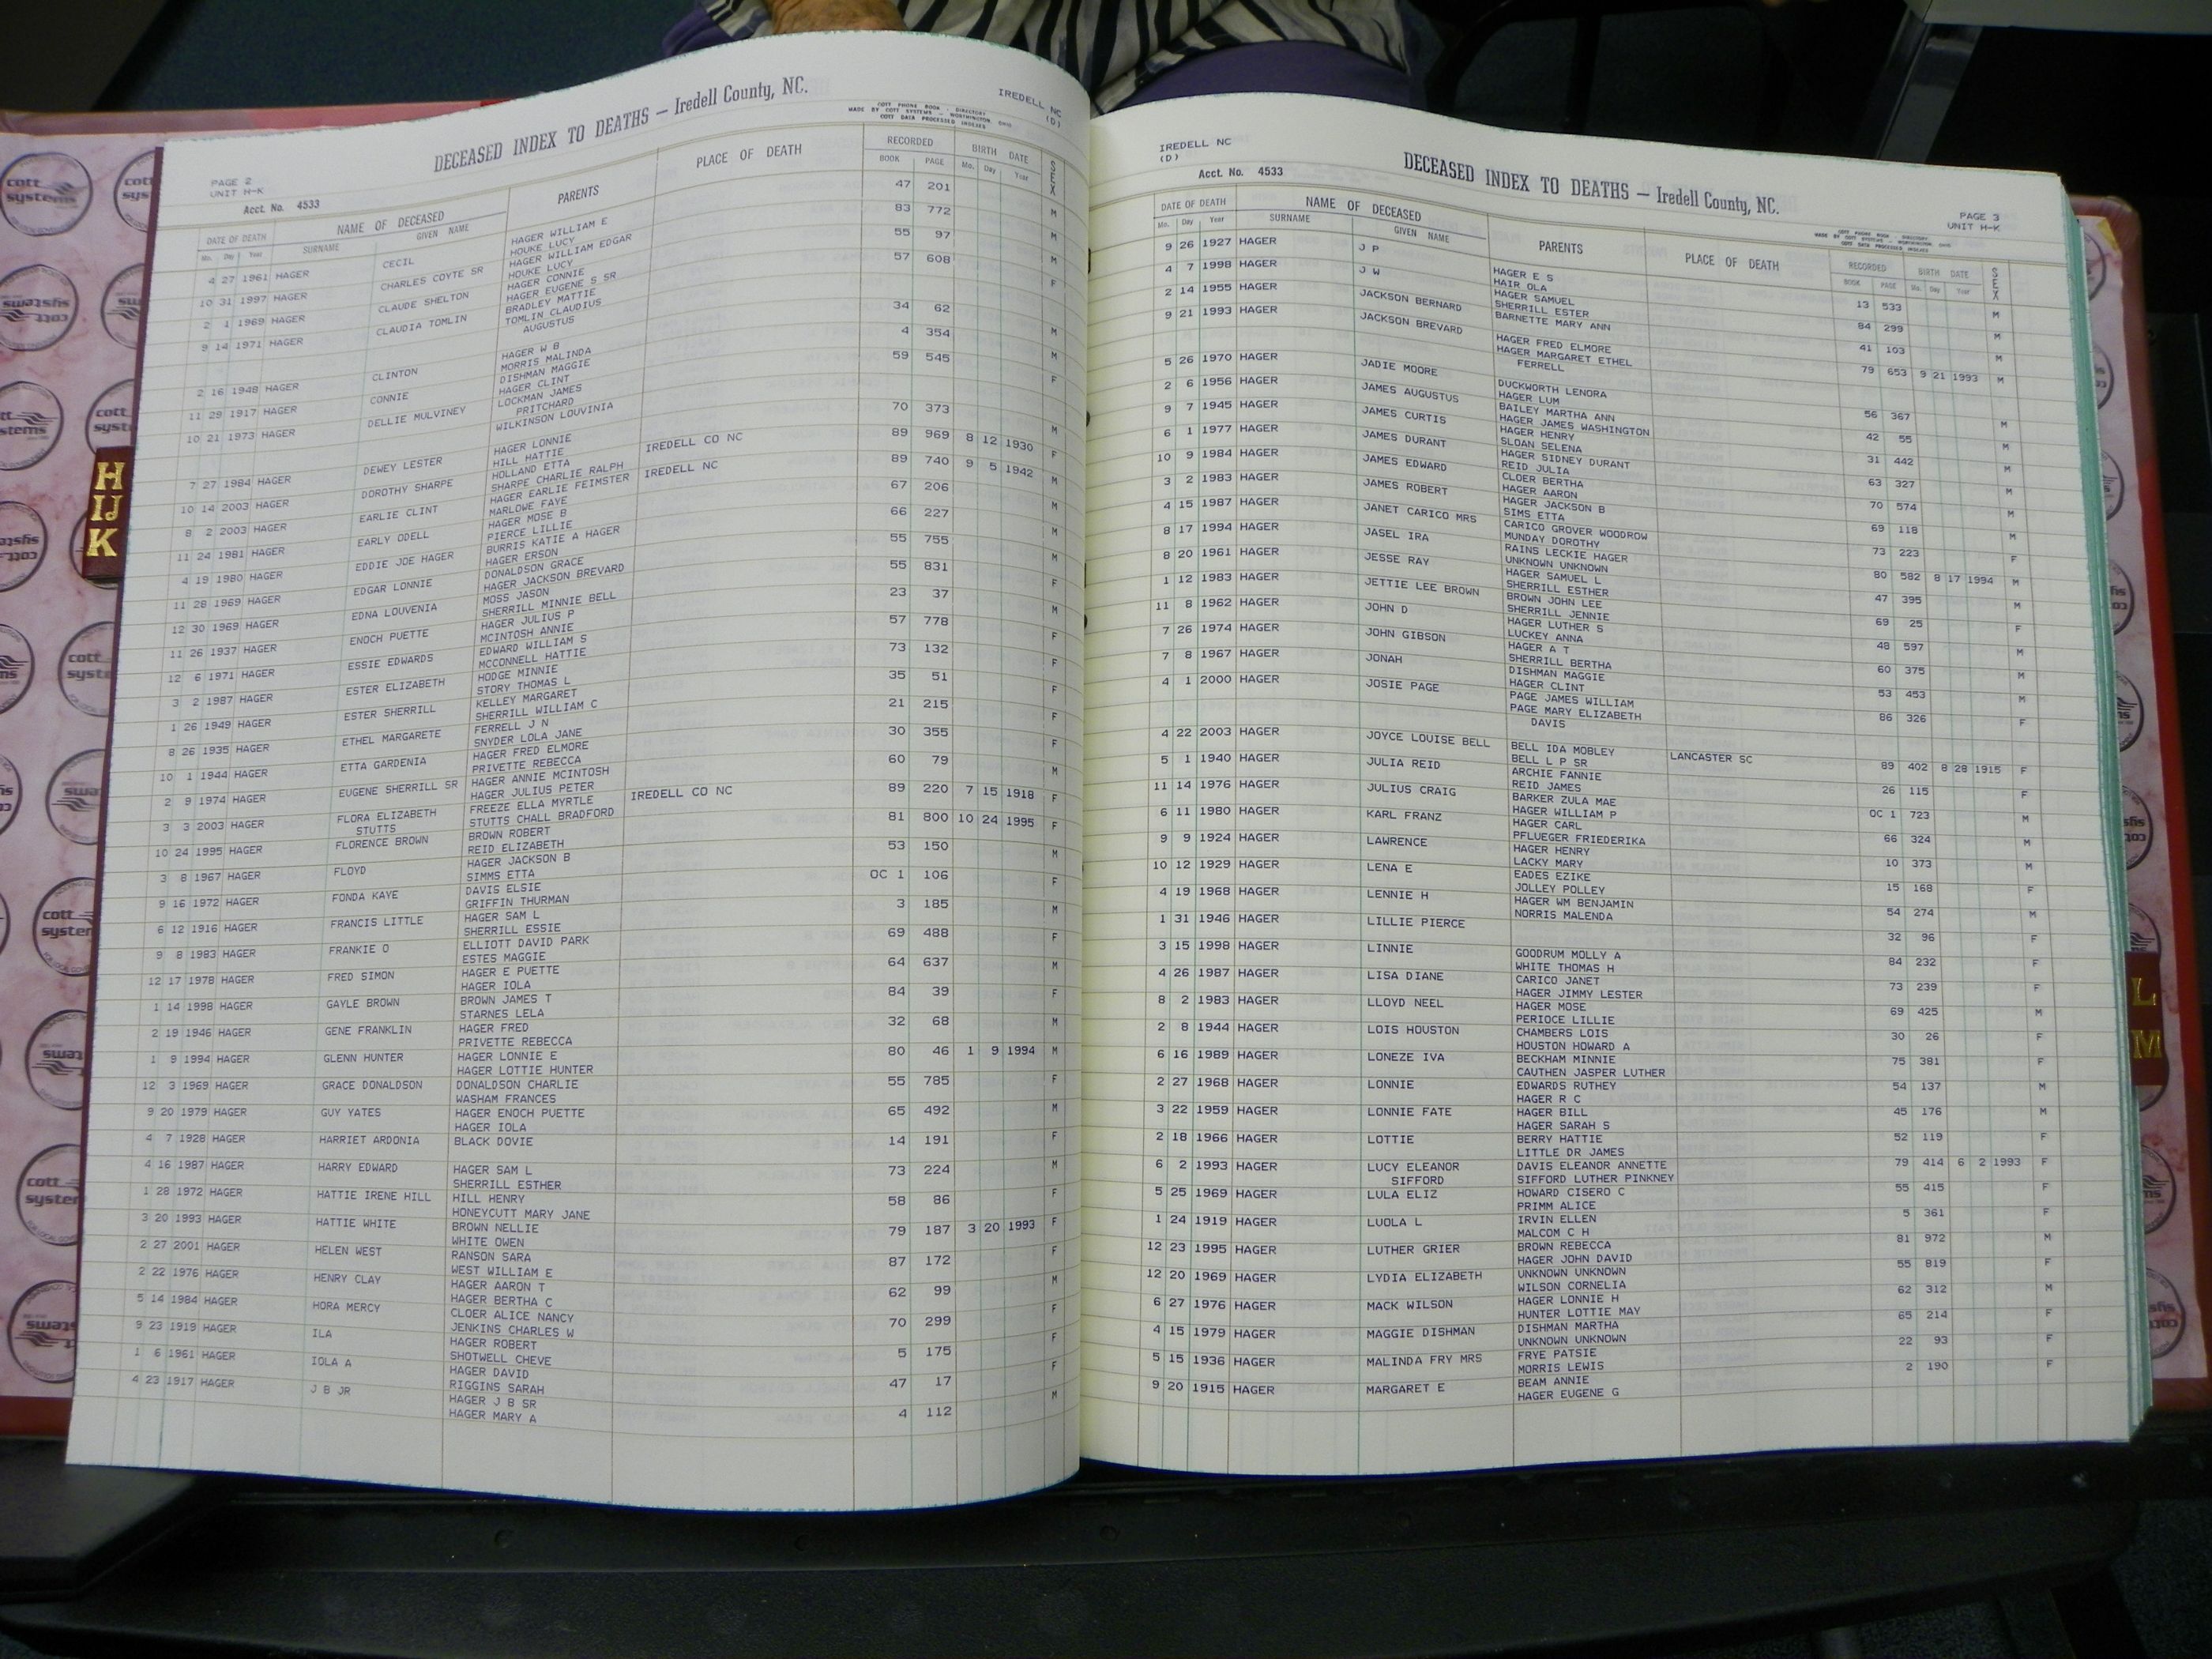 IREDELL NC
(D)
DECEASED INDEX TO DEATHS — Iredell County, NC.
COTT PHONE BOOK - DIRECTORY
MADE BY COTT SYSTEMS - WORTHINGTON, OHIO
COTT DATA PROCESSED INDEXES
PAGE 2
UNIT H-K
Acct. No. 4533
DATE OF DEATH NAME OF DECEASED PARENTS PLACE OF DEATH RECORDED BIRTH DATE SEX
Mo. Day Year SURNAME GIVEN NAME BOOK PAGE Mo. Day Year
4 27 1961 HAGER CECIL HAGER WILLIAM E 47 201 M
HOUKE LUCY
10 31 1997 HAGER CHARLES COYTE SR HAGER WILLIAM EDGAR 83 772 M
HOUKE LUCY
2 1 1969 HAGER CLAUDE SHELTON HAGER CONNIE 55 97 M
HAGER EUGENE S SR
9 14 1971 HAGER CLAUDIA TOMLIN BRADLEY MATTIE 57 608 F
TOMLIN CLAUDIUS
AUGUSTUS
2 16 1948 HAGER CLINTON HAGER W B 34 62 M
MORRIS MALINDA
11 29 1917 HAGER CONNIE DISHMAN MAGGIE 4 354 M
HAGER CLINT
10 21 1973 HAGER DELLIE MULVINEY LOCKMAN JAMES 59 545 F
PRITCHARD
WILKINSON LOUVINIA
7 27 1984 HAGER DEWEY LESTER HAGER LONNIE 70 373 M
HILL HATTIE
10 14 2003 HAGER DOROTHY SHARPE HOLLAND ETTA IREDELL CO NC 89 969 8 12 1930 F
SHARPE CHARLIE RALPH
8 2 2003 HAGER EARLIE CLINT HAGER EARLIE FEIMSTER IREDELL NC 89 740 9 5 1942 M
MARLOWE FAYE
11 24 1981 HAGER EARLY ODELL HAGER MOSE B 67 206 M
PIERCE LILLIE
4 19 1980 HAGER EDDIE JOE HAGER BURRIS KATIE A HAGER 66 227 M
HAGER ERSON
11 28 1969 HAGER EDGAR LONNIE DONALDSON GRACE 55 755 M
HAGER JACKSON BREVARD
12 30 1969 HAGER EDNA LOUVENIA MOSS JASON 55 831 F
SHERRILL MINNIE BELL
11 26 1937 HAGER ENOCH PUETTE HAGER JULIUS P 23 37 M
MCINTOSH ANNIE
12 6 1971 HAGER ESSIE EDWARDS EDWARD WILLIAM S 57 778 F
MCCONNELL HATTIE
3 2 1987 HAGER ESTER ELIZABETH HODGE MINNIE 73 132 F
STORY THOMAS L
1 26 1949 HAGER ESTER SHERRILL KELLEY MARGARET 35 51 F
SHERRILL WILLIAM C
8 26 1935 HAGER ETHEL MARGARETE FERRELL J N 21 215 F
SNYDER LOLA JANE
10 1 1944 HAGER ETTA GARDENIA HAGER FRED ELMORE 30 355 F
PRIVETTE REBECCA
2 9 1974 HAGER EUGENE SHERRILL SR HAGER ANNIE MCINTOSH 60 79 M
HAGER JULIUS PETER
3 3 2003 HAGER FLORA ELIZABETH FREEZE ELLA MYRTLE IREDELL CO NC 89 220 7 15 1918 F
STUTTS STUTTS CHALL BRADFORD
10 24 1995 HAGER FLORENCE BROWN BROWN ROBERT 81 800 10 24 1995 F
REID ELIZABETH
3 8 1967 HAGER FLOYD HAGER JACKSON B 53 150 M
SIMMS ETTA
9 16 1972 HAGER FONDA KAYE DAVIS ELSIE OC 1 106 F
GRIFFIN THURMAN
6 12 1916 HAGER FRANCIS LITTLE HAGER SAM L 3 185 M
SHERRILL ESSIE
9 8 1983 HAGER FRANKIE O ELLIOTT DAVID PARK 69 488 F
ESTES MAGGIE
12 17 1978 HAGER FRED SIMON HAGER E PUETTE 64 637 M
HAGER IOLA
1 14 1998 HAGER GAYLE BROWN BROWN JAMES T 84 39 F
STARNES LELA
2 19 1946 HAGER GENE FRANKLIN HAGER FRED 32 68 M
PRIVETTE REBECCA
1 9 1994 HAGER GLENN HUNTER HAGER LONNIE E 80 46 1 9 1994 M
HAGER LOTTIE HUNTER
12 3 1969 HAGER GRACE DONALDSON DONALDSON CHARLIE 55 785 F
WASHAM FRANCES
9 20 1979 HAGER GUY YATES HAGER ENOCH PUETTE 65 492 M
HAGER IOLA
4 7 1928 HAGER HARRIET ARDONIA BLACK DOVIE 14 191 F
4 16 1987 HAGER HARRY EDWARD HAGER SAM L 73 224 M
SHERRILL ESTHER
1 28 1972 HAGER HATTIE IRENE HILL HILL HENRY 58 86 F
HONEYCUTT MARY JANE
3 20 1993 HAGER HATTIE WHITE BROWN NELLIE 79 187 3 20 1993 F
WHITE OWEN
2 27 2001 HAGER HELEN WEST RANSON SARA 87 172 F
WEST WILLIAM E
2 22 1976 HAGER HENRY CLAY HAGER AARON T 62 99 M
HAGER BERTHA C
5 14 1984 HAGER HORA MERCY CLOER ALICE NANCY 70 299 F
JENKINS CHARLES W
9 23 1919 HAGER ILA HAGER ROBERT 5 175 F
SHOTWELL CHEVE
1 6 1961 HAGER IOLA A HAGER DAVID 47 17 F
RIGGINS SARAH
4 23 1917 HAGER J B JR HAGER J B SR 4 112 M
HAGER MARY A
IREDELL NC
(D)
Acct. No. 4533
DECEASED INDEX TO DEATHS — Iredell County, NC.
PAGE 3
UNIT H-K
COTT PHONE BOOK - DIRECTORY
MADE BY COTT SYSTEMS - WORTHINGTON, OHIO
COTT DATA PROCESSED INDEXES
DATE OF DEATH NAME OF DECEASED PARENTS PLACE OF DEATH RECORDED BIRTH DATE SEX
Mo. Day Year SURNAME GIVEN NAME BOOK PAGE Mo. Day Year
9 26 1927 HAGER J P HAGER E S 13 533 M
HAIR OLA
4 7 1998 HAGER J W HAGER SAMUEL 84 299 M
SHERRILL ESTER
2 14 1955 HAGER JACKSON BERNARD BARNETTE MARY ANN 41 103 M
9 21 1993 HAGER JACKSON BREVARD HAGER FRED ELMORE 79 653 9 21 1993 M
HAGER MARGARET ETHEL
FERRELL
5 26 1970 HAGER JADIE MOORE DUCKWORTH LENORA 56 367 M
HAGER LUM
2 6 1956 HAGER JAMES AUGUSTUS BAILEY MARTHA ANN 42 55 M
HAGER JAMES WASHINGTON
9 7 1945 HAGER JAMES CURTIS HAGER HENRY 31 442 M
SLOAN SELENA
6 1 1977 HAGER JAMES DURANT HAGER SIDNEY DURANT 63 327 M
REID JULIA
10 9 1984 HAGER JAMES EDWARD CLOER BERTHA 70 574 M
HAGER AARON
3 2 1983 HAGER JAMES ROBERT HAGER JACKSON B 69 118 M
SIMS ETTA
4 15 1987 HAGER JANET CARICO MRS CARICO GROVER WOODROW 73 223 F
MUNDAY DOROTHY
8 17 1994 HAGER JASEL IRA RAINS LECKIE HAGER 80 582 8 17 1994 M
UNKNOWN UNKNOWN
8 20 1961 HAGER JESSE RAY HAGER SAMUEL L 47 395 M
SHERRILL ESTHER
1 12 1983 HAGER JETTIE LEE BROWN BROWN JOHN LEE 69 25 F
SHERRILL JENNIE
11 8 1962 HAGER JOHN D HAGER LUTHER S 48 597 M
LUCKEY ANNA
7 26 1974 HAGER JOHN GIBSON HAGER A T 60 375 M
SHERRILL BERTHA
7 8 1967 HAGER JONAH DISHMAN MAGGIE 53 453 M
HAGER CLINT
4 1 2000 HAGER JOSIE PAGE PAGE JAMES WILLIAM 86 326 F
PAGE MARY ELIZABETH
DAVIS
4 22 2003 HAGER JOYCE LOUISE BELL BELL IDA MOBLEY LANCASTER SC 89 402 8 28 1915 F
BELL L P SR
5 1 1940 HAGER JULIA REID ARCHIE FANNIE 26 115 F
REID JAMES
11 14 1976 HAGER JULIUS CRAIG BARKER ZULA MAE OC 1 723 M
HAGER WILLIAM P
6 11 1980 HAGER KARL FRANZ HAGER CARL 66 324 M
PFLUEGER FRIEDERIKA
9 9 1924 HAGER LAWRENCE HAGER HENRY 10 373 M
LACKY MARY
10 12 1929 HAGER LENA E EADES EZIKE 15 168 F
JOLLEY POLLEY
4 19 1968 HAGER LENNIE H HAGER WM BENJAMIN 54 274 M
NORRIS MALENDA
1 31 1946 HAGER LILLIE PIERCE 32 96 F
3 15 1998 HAGER LINNIE GOODRUM MOLLY A 84 232 F
WHITE THOMAS H
4 26 1987 HAGER LISA DIANE CARICO JANET 73 239 F
HAGER JIMMY LESTER
8 2 1983 HAGER LLOYD NEEL HAGER MOSE 69 425 M
PERIOCE LILLIE
2 8 1944 HAGER LOIS HOUSTON CHAMBERS LOIS 30 26 F
HOUSTON HOWARD A
6 16 1989 HAGER LONEZE IVA BECKHAM MINNIE 75 381 F
CAUTHEN JASPER LUTHER
2 27 1968 HAGER LONNIE EDWARDS RUTHEY 54 137 M
HAGER R C
3 22 1959 HAGER LONNIE FATE HAGER BILL 45 176 M
HAGER SARAH S
2 18 1966 HAGER LOTTIE BERRY HATTIE 52 119 F
LITTLE DR JAMES
6 2 1993 HAGER LUCY ELEANOR DAVIS ELEANOR ANNETTE 79 414 6 2 1993 F
SIFFORD SIFFORD LUTHER PINKNEY
5 25 1969 HAGER LULA ELIZ HOWARD CISERO C 55 415 F
PRIMM ALICE
1 24 1919 HAGER LUOLA L IRVIN ELLEN 5 361 F
MALCOM C H
12 23 1995 HAGER LUTHER GRIER BROWN REBECCA 81 972 M
HAGER JOHN DAVID
12 20 1969 HAGER LYDIA ELIZABETH UNKNOWN UNKNOWN 55 819 F
WILSON CORNELIA
6 27 1976 HAGER MACK WILSON HAGER LONNIE H 62 312 M
HUNTER LOTTIE MAY
4 15 1979 HAGER MAGGIE DISHMAN DISHMAN MARTHA 65 214 F
UNKNOWN UNKNOWN
5 15 1936 HAGER MALINDA FRY MRS FRYE PATSIE 22 93 F
MORRIS LEWIS
9 20 1915 HAGER MARGARET E BEAM ANNIE 2 190 F
HAGER EUGENE G
H
IJ
K
L
M
cott systems